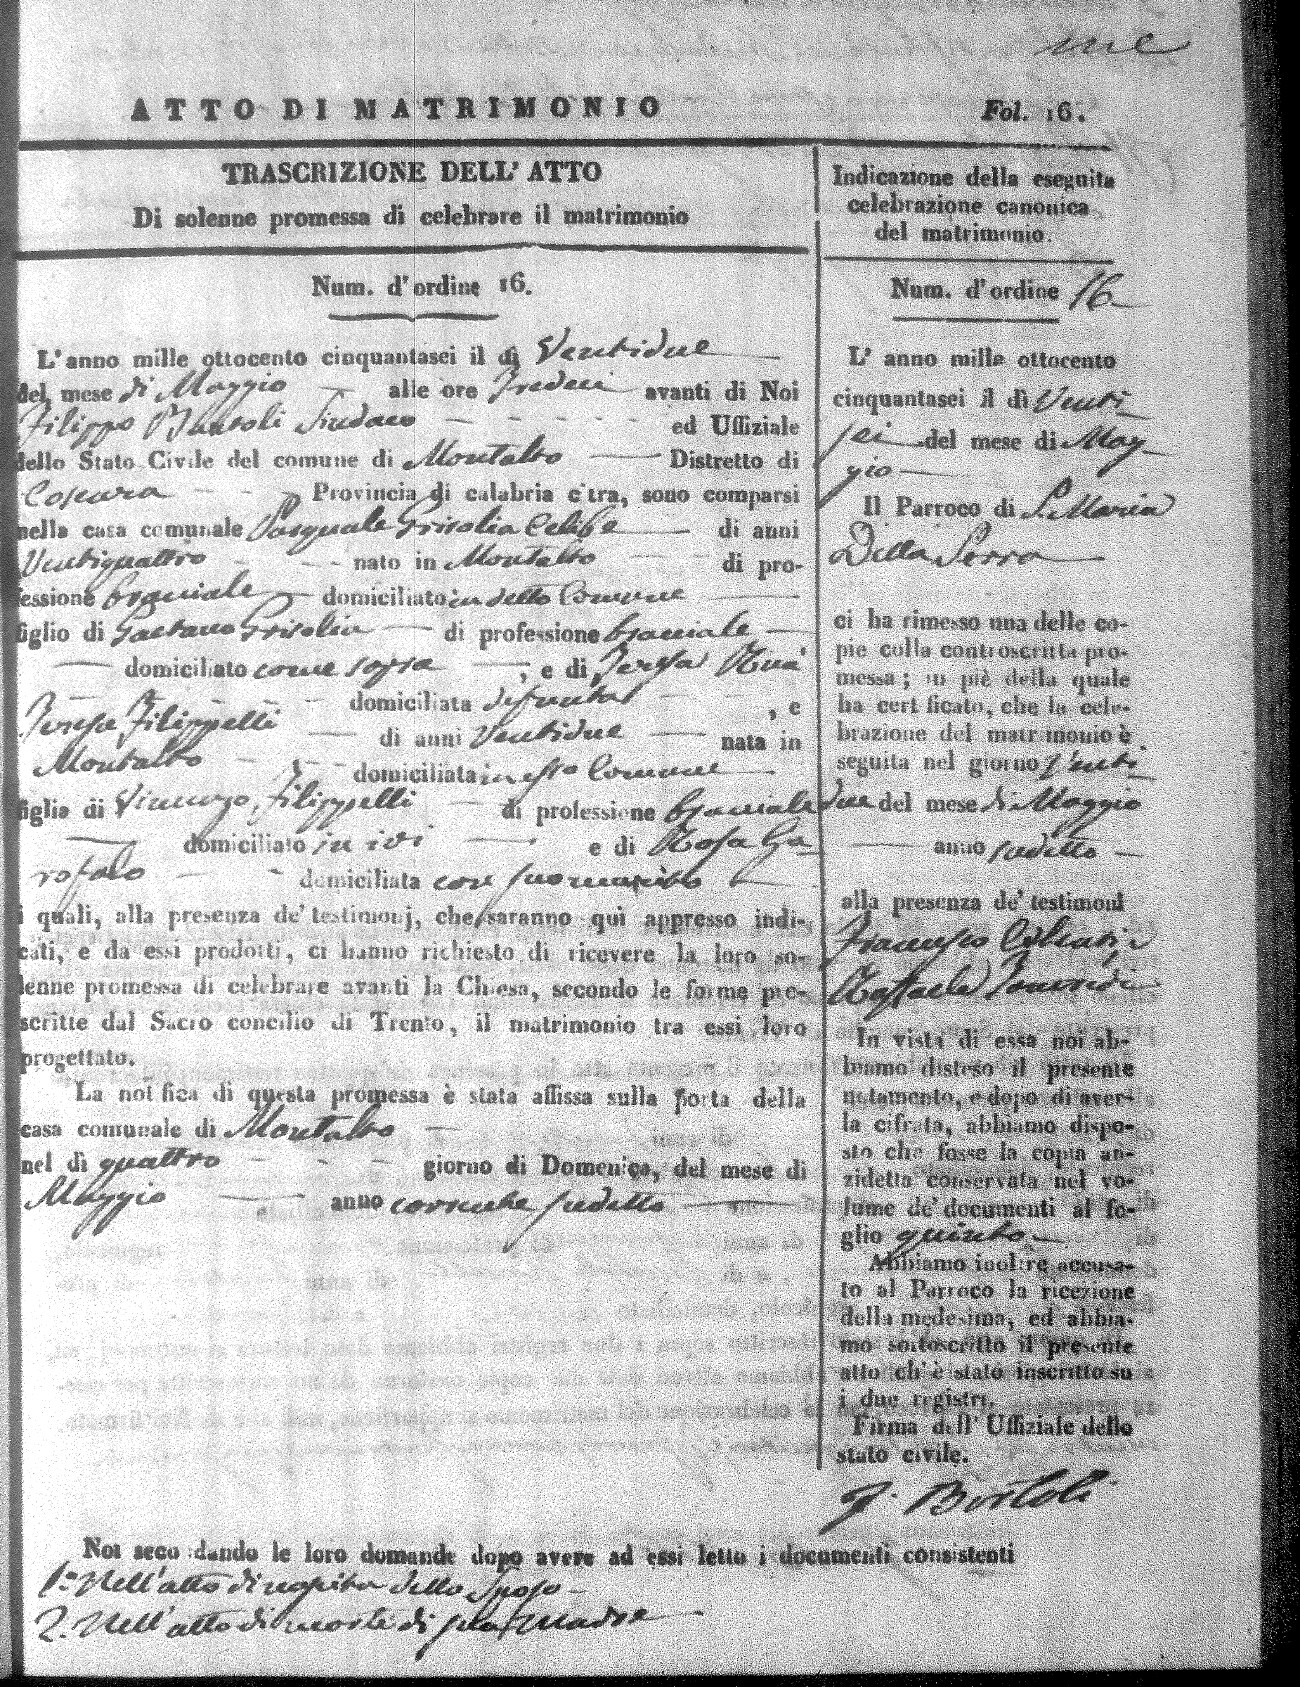 ATTO DI MATRIMONIO
Fol. 16.
TRASCRIZIONE DELL' ATTO
Di solenne promessa di celebrare il matrimonio
Num. d'ordine 16.
L'anno mille ottocento cinquantasei il dì Ventidue
del mese di Maggio alle ore Tredeci avanti di Noi
Filippo Bartoli Sindaco ed Uffiziale
dello Stato Civile del comune di Montalto Distretto di
Cosenza Provincia di calabria citra, sono comparsi
nella casa comunale Pasquale Grisolia Celibe di anni
Ventiquattro nato in Montalto di pro-
fessione bracciale domiciliato in detto Comune
figlio di Gaetano Grisolia di professione bracciale
domiciliato come sopra ; e di Teresa
domiciliata defunta , e
Teresa Filippelli di anni Ventidue nata in
Montalto domiciliata in esso Comune
figlia di Vincenzo Filippelli di professione bracciale
domiciliato in ivi e di Rosa Ga
rofalo domiciliata con suo marito
i quali, alla presenza de' testimonj, che saranno qui appresso indi-
cati, e da essi prodotti, ci hanno richiesto di ricevere la loro so-
lenne promessa di celebrare avanti la Chiesa, secondo le forme pre-
scritte dal Sacro concilio di Trento, il matrimonio tra essi loro
progettato.
La notifica di questa promessa è stata affissa sulla porta della
casa comunale di Montalto
nel dì quattro giorno di Domenica, del mese di
Maggio anno corrente sudetto
Indicazione della eseguita
celebrazione canonica
del matrimonio.
Num. d'ordine 16
L' anno mille ottocento
cinquantasei il dì Venti
sei del mese di Mag
gio
Il Parroco di S. Maria
Della Serra
ci ha rimesso una delle co-
pie colla controscritta pro-
messa; in piè della quale
ha certificato, che la cele-
brazione del matrimonio è
seguita nel giorno venti
due del mese di Maggio
anno sudetto
alla presenza de' testimoni
Francesco
Raffaele
In vista di essa noi ab-
biamo disteso il presente
notamento, e dopo di aver-
la cifrata, abbiamo dispo-
sto che fosse la copia an-
zidetta conservata nel vo-
lume de' documenti al fo-
glio quinto
Abbiamo inoltre accusa-
to al Parroco la ricezione
della medesima, ed abbia-
mo sottoscritto il presente
atto ch' è stato inscritto su
i due registri.
Firma dell' Uffiziale dello
stato civile.
F. Bartoli
Noi secondando le loro domande dopo avere ad essi letto i documenti consistenti
1.° Nell'atto di nascita dello Sposo
2. Nell'atto di morte di sua Madre